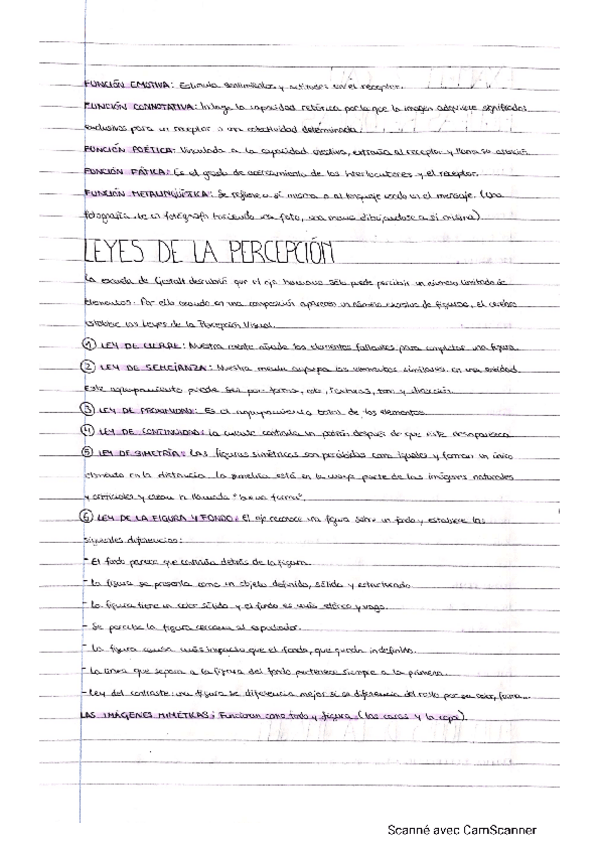 FUNCIÓN EMOTIVA: Estimula sentimientos y actitudes en el receptor.
FUNCIÓN CONNOTATIVA: Incluye la capacidad retórica por la que la imagen adquiere significados
exclusivos para un receptor o una colectividad determinada.
FUNCIÓN POÉTICA: Vinculada a la capacidad creativa, extraña al receptor y llama su atención.
FUNCIÓN FÁTICA: Es el grado de acercamiento de los interlocutores y el receptor.
FUNCIÓN METALINGÜÍSTICA: Se refiere a sí misma o al lenguaje usado en el mensaje. (Una
fotografía de un fotógrafo haciendo una foto, una mano dibujándose a sí misma)
LEYES DE LA PERCEPCIÓN
La escuela de Gestalt descubrió que el ojo humano sólo puede percibir un número limitado de
elementos. Por ello cuando en una composición aparecen un número excesivo de figuras, el cerebro
establece las Leyes de la Percepción Visual.
① LEY DE CIERRE: Nuestra mente añade los elementos faltantes para completar una figura.
② LEY DE SEMEJANZA: Nuestra mente agrupa los elementos similares en una entidad.
Este agrupamiento puede ser por: forma, color, texturas, tono y dirección.
③ LEY DE PROXIMIDAD: Es el agrupamiento de los elementos.
④ LEY DE CONTINUIDAD: La mente continúa un patrón después de que este desaparezca
⑤ LEY DE SIMETRÍA: Las figuras simétricas son percibidas como iguales y forman un único
elemento en la distancia. La simetría está en la mayor parte de las imágenes naturales
y artificiales y crean la llamada "buena forma".
⑥ LEY DE LA FIGURA Y FONDO: El ojo reconoce una figura sobre un fondo y establece las
siguientes diferencias:
- El fondo parece que continúa detrás de la figura.
- La figura se presenta como un objeto definido, sólido y estructurado
- La figura tiene un color sólido y el fondo es más etéreo y vago.
- Se percibe la figura cercana al espectador.
- La figura causa más impacto que el fondo, que queda indefinido.
- La línea que separa a la figura del fondo pertenece siempre a la primera.
- Ley del contraste: una figura se diferencia mejor si se diferencia del resto por su color, forma...
LAS IMÁGENES MIMÉTICAS: Funcionan como fondo y figura. (las caras y la copa).
Scanné avec CamScanner